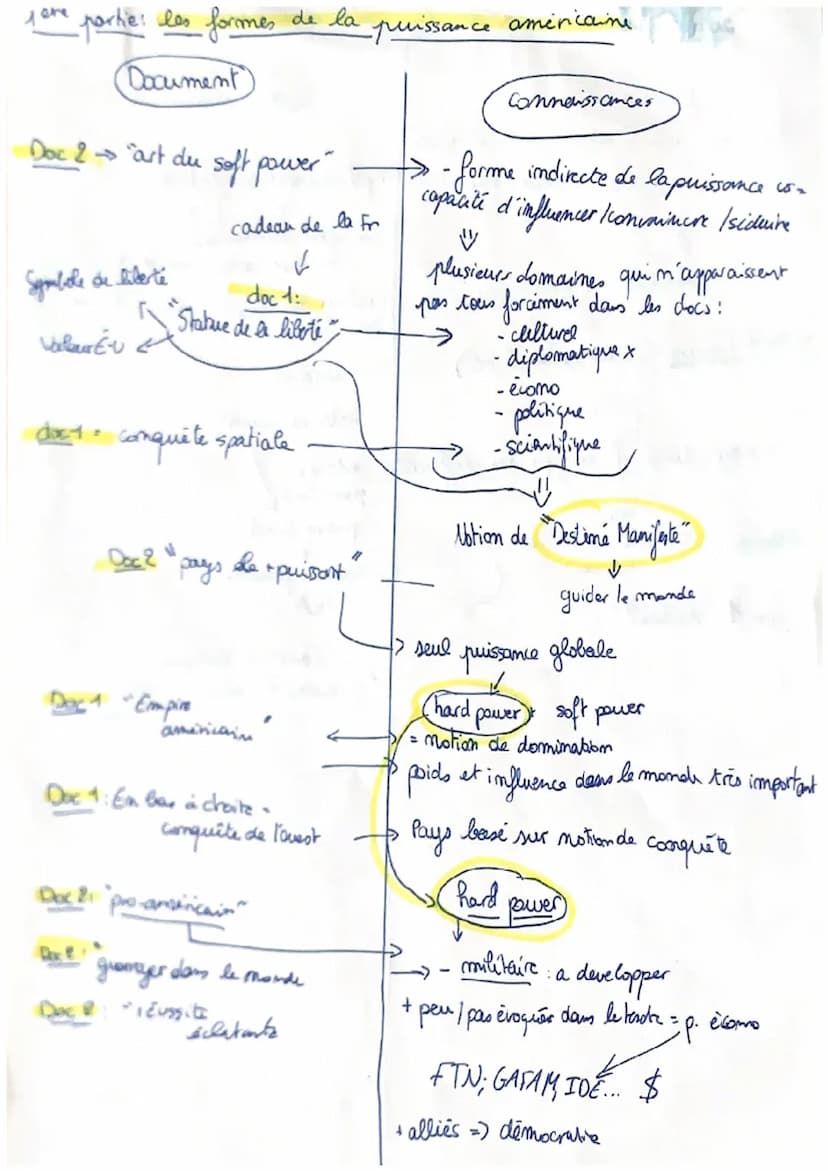 1ère partie: les formes de la puissance américaine
Document
Connaissances
Doc 2 → "art du soft power"
- forme indirecte de la puissance
capacité d'influencer/convaincre/séduire
cadeau de la Fr
⇓
plusieurs domaines qui n'apparaissent
pas tous forcément dans les docs:
Symbole de liberté
doc 1:
"Statue de la liberté"
Valeur É-U
- culturel
- diplomatique x
- écono
- politique
- scientifique
doc 1 = conquête spatiale
Notion de "Destiné Manifeste"
guider le monde
Doc2 "pays le + puissant"
seul puissance globale
hard power + soft power
= notion de domination
Doc 1 "Empire
américain"
poids et influence dans le monde très important
Doc 1: En bas à droite =
conquête de l'ouest
Pays basé sur notion de conquête
hard power
Doc 2: "pro-américain"
- militaire : a developper
Doc 2: "
dans le monde
+ peu/pas évoquér dans le texte = p. écono
Doc 2: "réussite
éclatante
FTN; GAFAM, IDE... $
+ alliés => démocratie